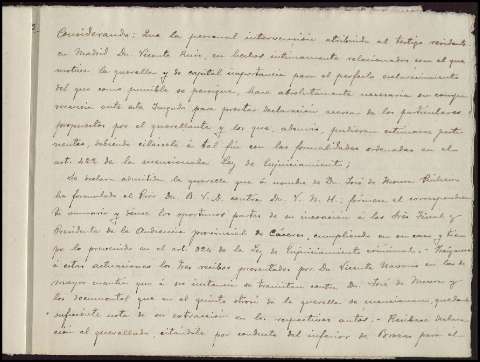 Considerando: Que la personal intervención atribuida al testigo residente
en Madrid Dn. Vicente Ruiz, en hechos íntimamente relacionados con el que
motiva la querella y de capital importancia para el perfecto esclarecimiento
del que como punible se persigue, hace absolutamente necesaria su compa-
recencia ante este Juzgado para prestar declaración acerca de los particulares
propuestos por el querellante y los que, además, pudieran estimarse perti-
nentes, debiendo citársele á tal fin con las formalidades ordenadas en el
art. 422 de la mencionada Ley de Enjuiciamiento;
Se declara admitida la querella que á nombre de Dn. José de
ha formulado el Pror. Dn. B. V. D. contra Dn. V. N. H.; fórmese el correspondien-
te sumario y dense los oportunos partes de su incoación á los Sres. Fiscal y
Presidente de la Audiencia provincial de Cáceres, cumpliendo en su caso y tiem-
po lo prevenido en el art. 324 de la Ley de Enjuiciamiento criminal.-
á estas actuaciones los tres recibos presentados por Dn. Vicente Navarro en los de
mayor cuantía que á su instancia se tramitan contra Dn. José de
y los documentos que en el quinto otrosí de la querella se mencionan, quedando
suficiente nota de su extracción en los respectivos autos.- Recíbase declara-
ción al querellado, citándole por conducto del inferior de para el